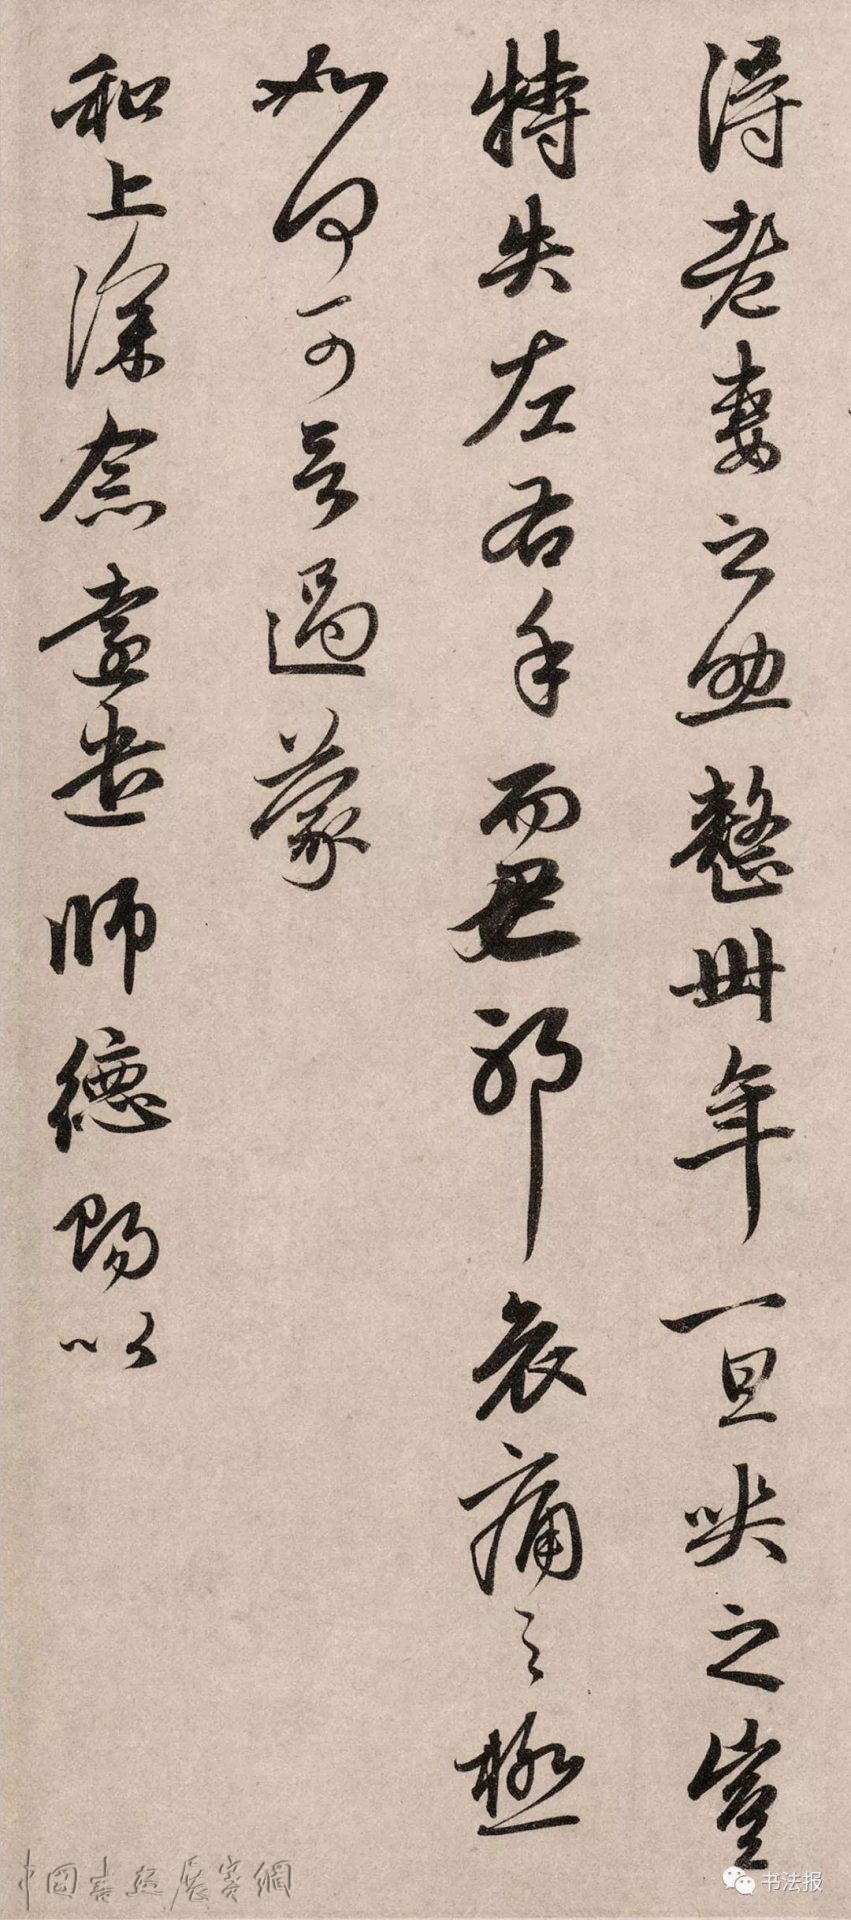 得老妻之助整卅年一旦哭之豈
特失左右手而已耶哀痛之極
如何可言過蒙
和上深念遠遣師德賜以
中國書法展賽網
书法报